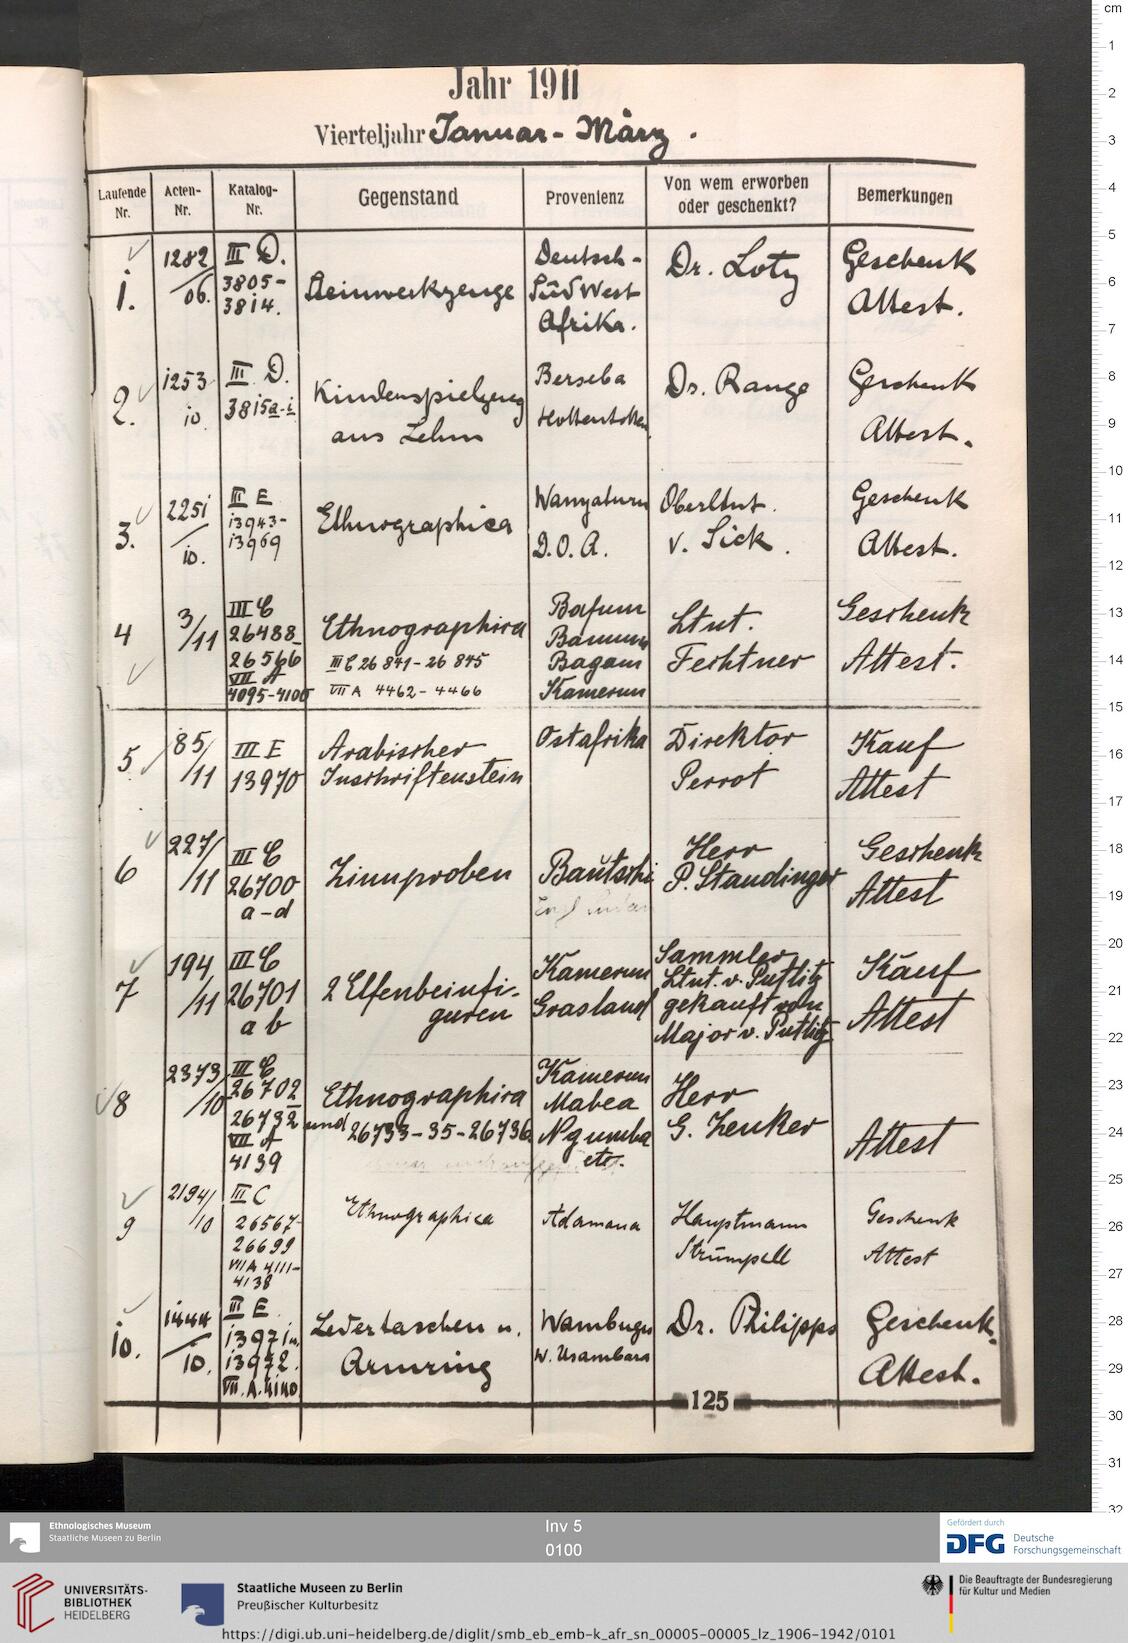 Jahr 1911
Vierteljahr Januar - März.
Laufende Nr.
Acten-Nr.
Katalog-Nr.
Gegenstand
Provenienz
Von wem erworben oder geschenkt?
Bemerkungen
1.
1282/06.
III D.
3805-
3814.
Steinwerkzeuge
Deutsch-
Süd West
Afrika.
Dr. Lotz
Geschenk
Attest.
2.
1253
10.
III D.
3815a-i
Kinderspielzeug
aus Lehm
Berseba
Hottentotten
Dr. Range
Geschenk
Attest.
3.
2251/10.
III E
13943-
13969
Ethnographica
Wanyaturu
D.O.A.
Oberltnt.
v. Sick.
Geschenk
Attest.
4
3/11
III C
26488-
26566
VII A
4095-4100
Ethnographica
III C 26841-26845
VII A 4462-4466
Bafum
Bamum
Bagam
Kamerun
Ltnt.
Fechtner
Geschenk
Attest.
5
85/11
III E
13970
Arabischer
Inschriftenstein
Ostafrika
Direktor
Perrot
Kauf
Attest
6
227/11
III C
26700
a-d
Zinnproben
Bautschi
Herr
P. Staudinger
Geschenk
Attest
7
194/11
III C
26701
a b
2 Elfenbeinfi-
guren
Kamerun
Grasland
Sammler
Ltnt. v. Puttlitz
gekauft von
Major v. Putlitz
Kauf
Attest
8
2373/10
III C
26702
26732
VII A
4139
Ethnographica
und 26733-35-26736
Kamerun
Mabea
Ngumba
etc.
Herr
G. Zenker
Attest
9
2194/10
III C
26567-
26699
VII A 4111-
4138
Ethnographica
Adamaua
Hauptmann
Strümpell
Geschenk
Attest
10.
1444/10.
III E
13971u.
13972.
VII. A. 4140
Ledertaschen u.
Armring
Wambugu
W. Usambara
Dr. Philipps
Geschenk.
Attest.
125
cm
1
2
3
4
5
6
7
8
9
10
11
12
13
14
15
16
17
18
19
20
21
22
23
24
25
26
27
28
29
30
31
32
Ethnologisches Museum
Staatliche Museen zu Berlin
Inv 5
0100
Gefördert durch
DFG Deutsche
Forschungsgemeinschaft
UNIVERSITÄTS-
BIBLIOTHEK
HEIDELBERG
Staatliche Museen zu Berlin
Preußischer Kulturbesitz
Die Beauftragte der Bundesregierung
für Kultur und Medien
https://digi.ub.uni-heidelberg.de/diglit/smb_eb_emb-k_afr_sn_00005-00005_lz_1906-1942/0101